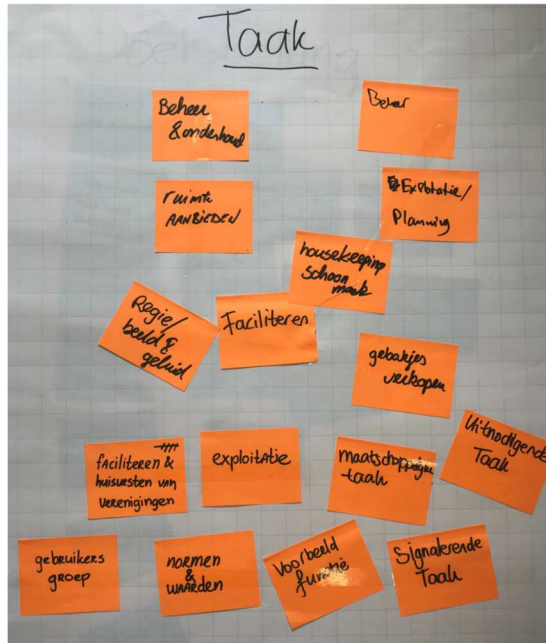 Taak
Beheer
& onderhoud
Beheer
ruimte
AANBIEDEN
Exploitatie/
Planning
housekeeping
schoon
maak
Regie/
beeld &
geluid
Faciliteren
gebakjes
verkopen
Uitnodigende
Taak
faciliteren &
huisvesten van
verenigingen
exploitatie
maatschappelijke
taak
gebruikers
groep
normen
&
WAARDEN
Voorbeeld
functie
Signalerende
Taak